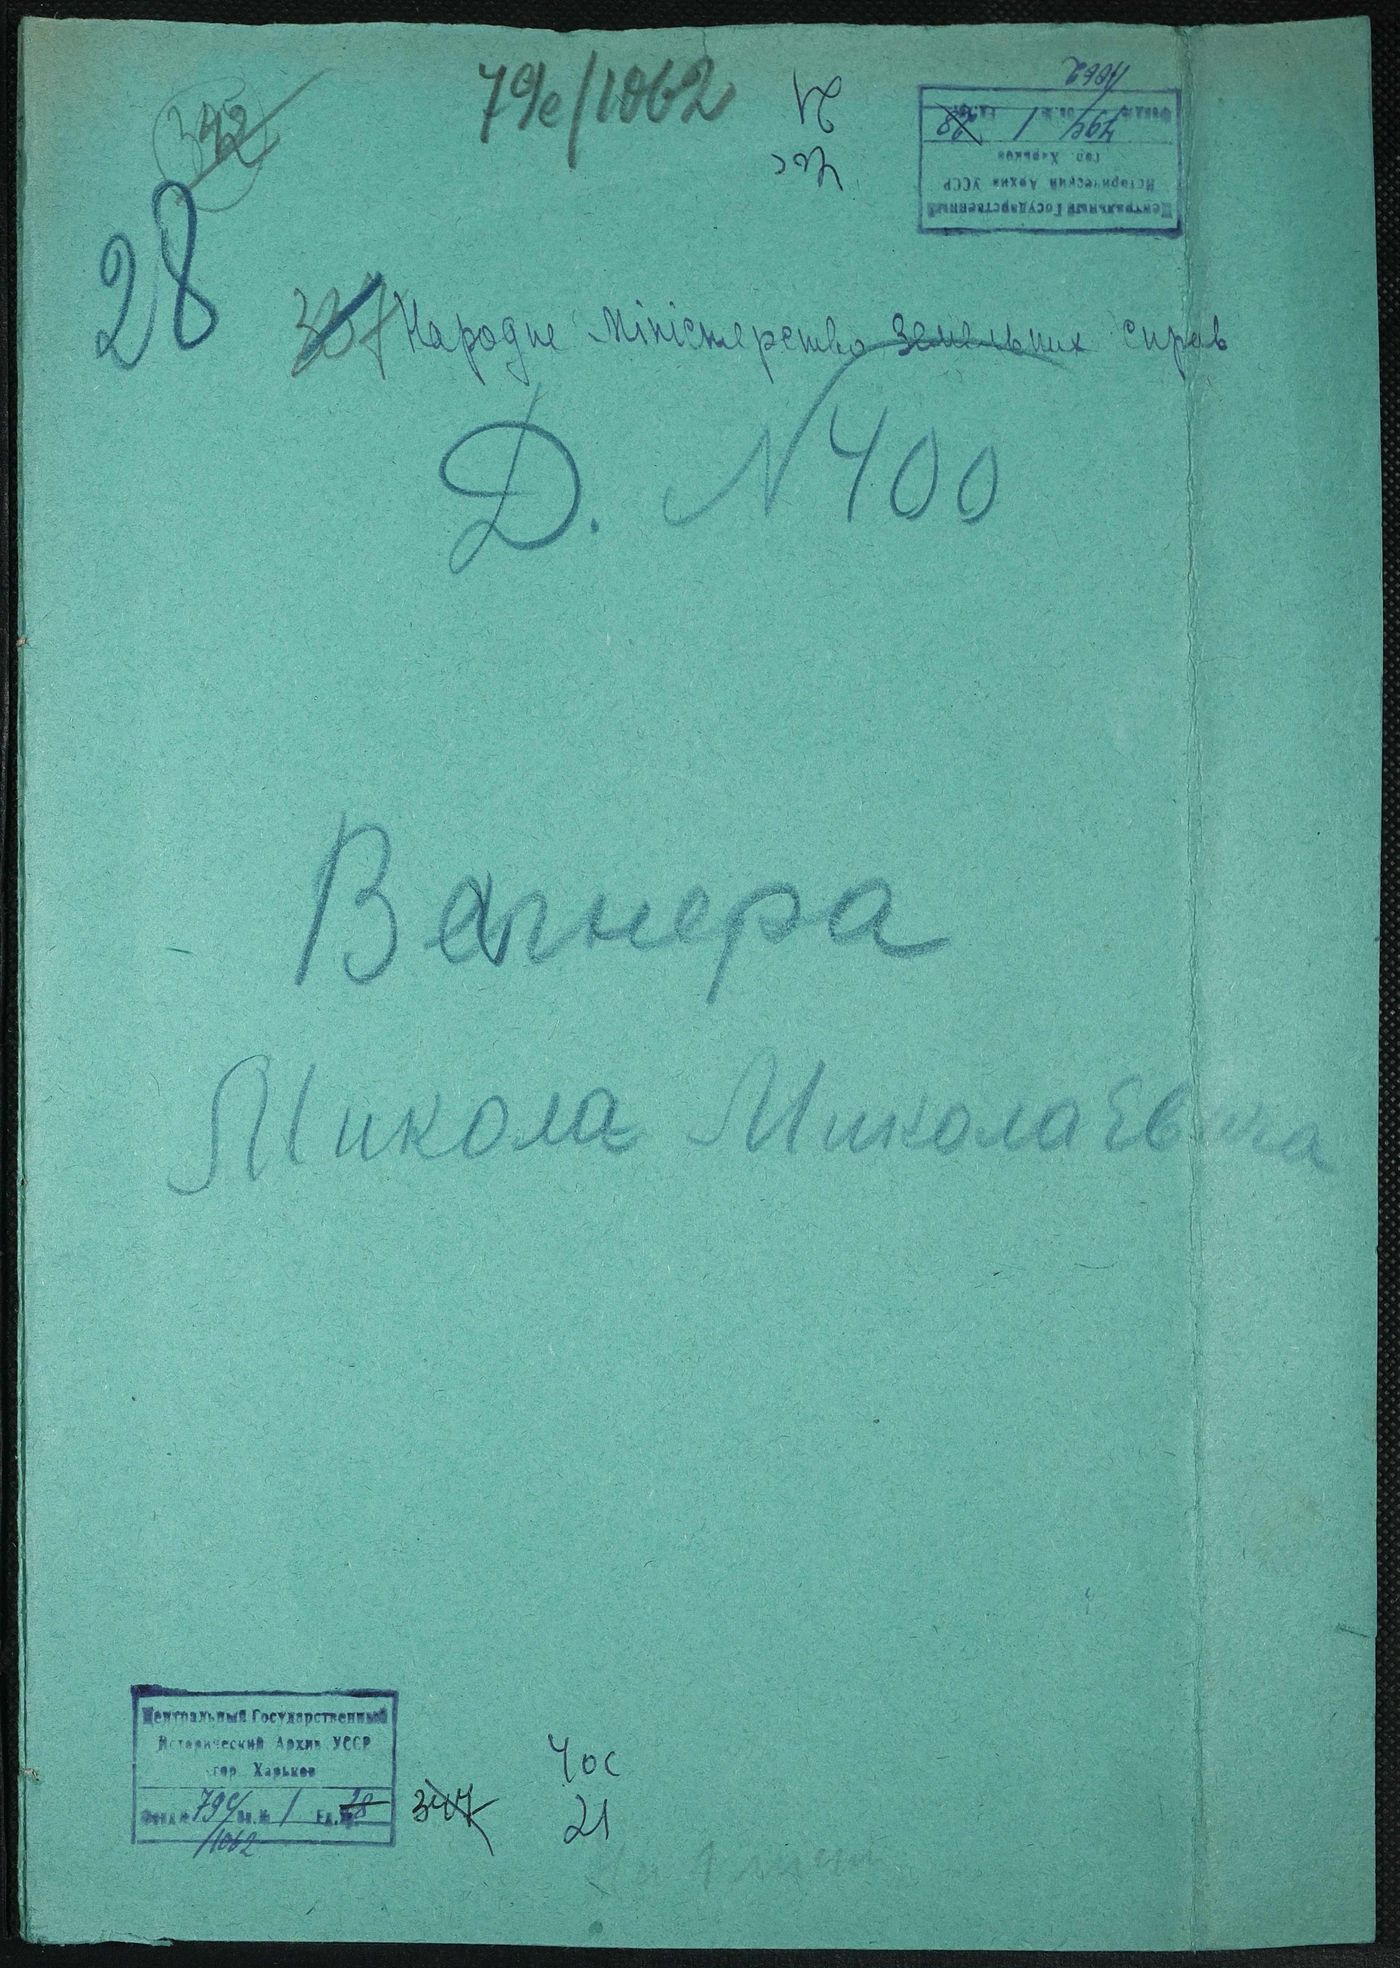 342
79с/1062
28
337 Народне Міністерство Земельних Справ
Д. № 400
Вагнера
Микола Миколаєвича
Центральный Государственный
Исторический Архив УССР
гор. Харьков
Фонд № 79с Оп. № 1 Ед. хр. 28
1062
Центральный Государственный
Исторический Архив УССР
гор. Харьков
Фонд № 79с Оп. № 1 Ед. хр. 28
1062
347
21